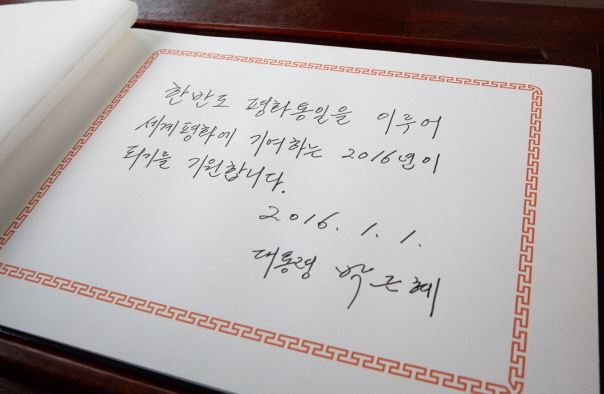 한반도 평화통일을 이루어
세계평화에 기여하는 2016년이
되기를 기원합니다.
2016. 1. 1.
대통령 박근혜